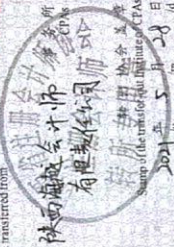 transferred from
事务所
CPAs
陕西海越会计师
有限责任公司
转出协会盖章
Stamp of the transfer-out Institute of CPAs
2021年5月28日